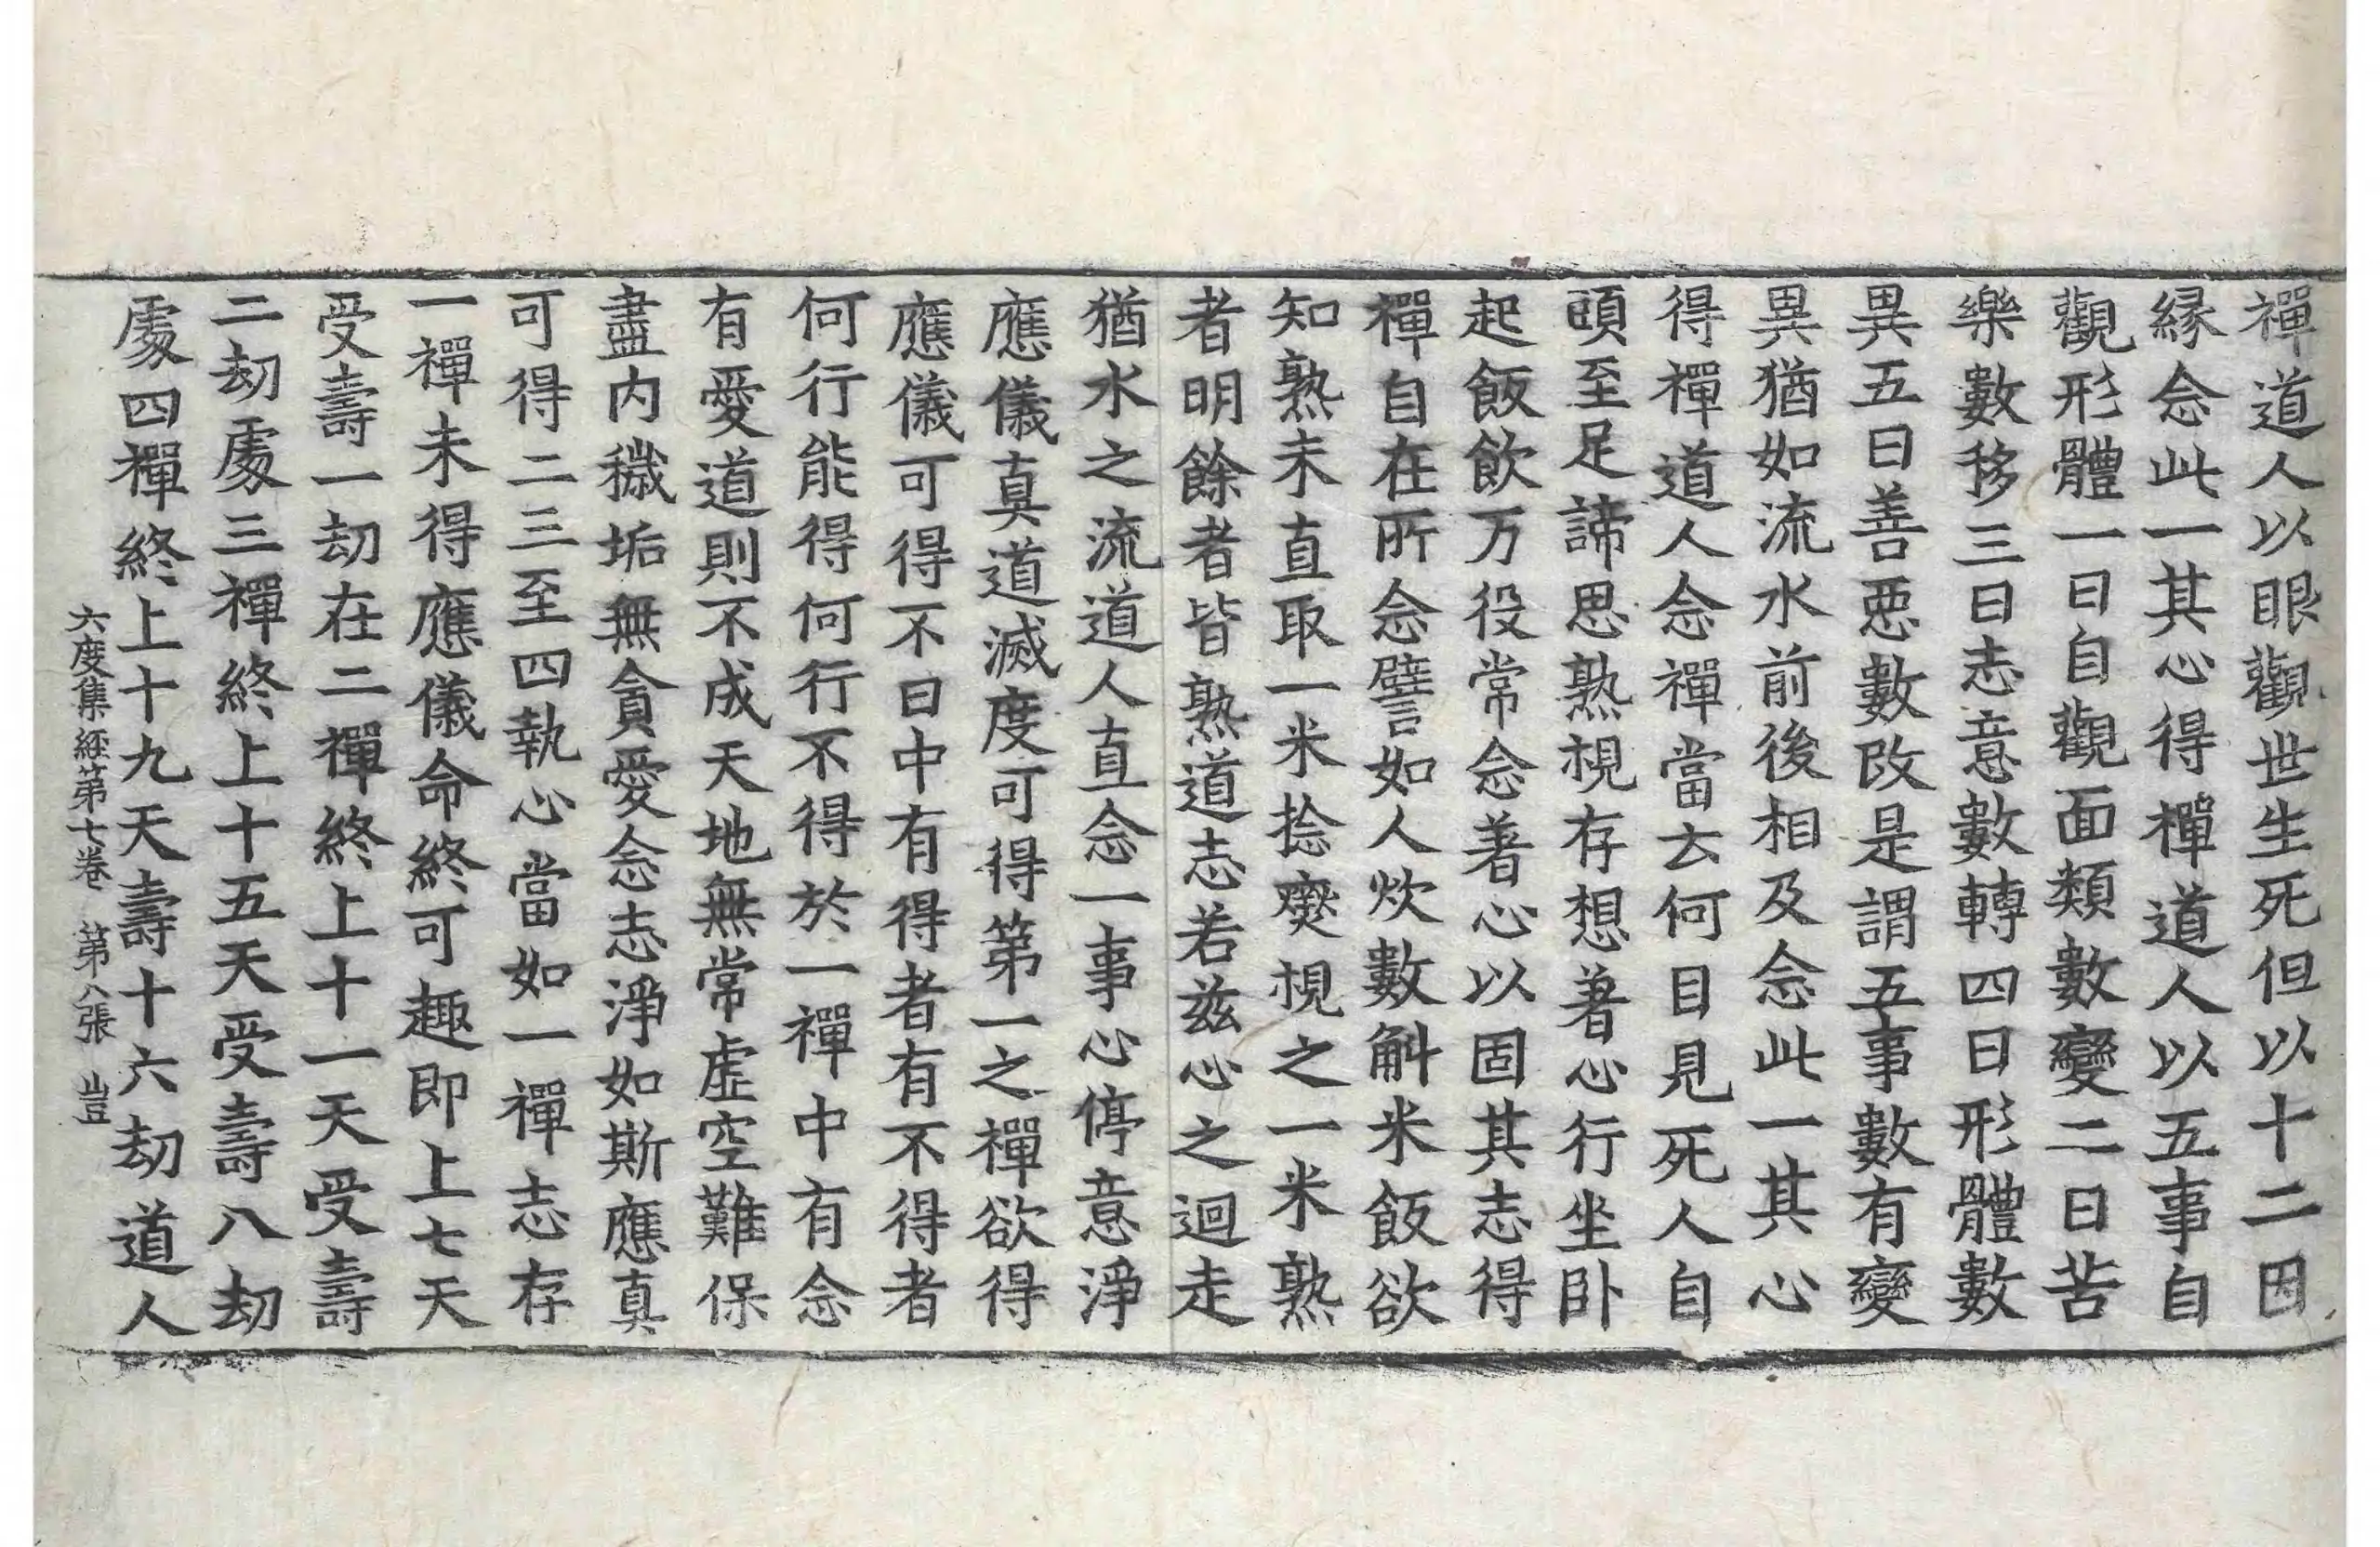 禪道人以眼觀世生死但以十二因
縁念此一其心得禪道人以五事自
觀形體一曰自觀面類數變二曰苦
樂數移三曰志意數轉四曰形體數
異五曰善惡數改是謂五事數有變
異猶如流水前後相及念此一其心
得禪道人念禪當去何目見死人自
頭至足諦思熟視存想著心行坐卧
起飯飲万役常念著心以固其志得
禪自在所念譬如人炊數斛米飯欲
知熟未直取一米捻㸑視之一米熟
者明餘者皆熟道志若兹心之迴走
猶水之流道人直念一事心停意淨
應儀真道滅度可得第一之禪欲得
應儀可得不曰中有得者有不得者
何行能得何行不得於一禪中有念
有愛道則不成天地無常虛空難保
盡内穢垢無貪愛念志淨如斯應真
可得二三至四執心當如一禪志存
一禪未得應儀命終可趣即上七天
受壽一劫在二禪終上十一天受壽
二劫處三禪終上十五天受壽八劫
處四禪終上十九天壽十六劫道人
六度集經第七卷 第八張 豈